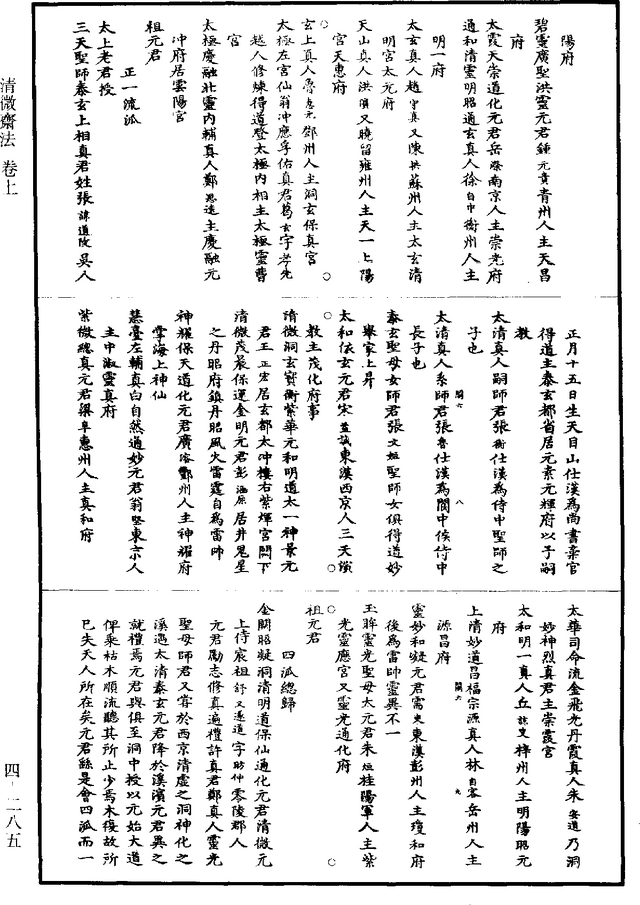 陽府
碧霊廣聖洪靈元君鍾元賁青州人主天昌
府
太霞天崇道化元君岳際南京人主崇光府
通和清靈明昭通玄真人徐自中衡州人主
明一府
太玄真人趙守真又陳拱蘇州人主太玄清
明宮太元府
天山真人洪順又曉留雍州人主天一上陽
宮天惠府
玄上真人魯志元鄧州人主洞玄保真宮
太極左宮仙翁冲應孚佑真君葛玄字孝先
越人修煉得道登太極内相主太極靈曹
宮
太極慶融北靈内輔真人鄭思遠主慶融元
冲府居雲陽宮
祖元君
正一流派
太上老君授
三天聖師泰玄上相真君姓張諱道陵吳人
正月十五日生天目山仕漢為尚書棄官
得道主泰玄都省居元素元輝府以子嗣
教
太清真人嗣師君張衡仕漢為侍中聖師之
子也
太清真人系師君張魯仕漢為閬中侯侍中
長子也
泰玄聖母女師君張文姬聖師女俱得道妙
舉家上昇
太和依玄元君宋並誠東漢西京人三天演
教主茂化府事
清微洞玄寶衡紫華元和明道太一神景元
君王正宏居玄都太冲樓右紫煇宮闕下
清微茂宸保運金明元君彭涵原居井鬼星
之丹昭府鎮丹昭風火雷霆自為雷帥
神耀保天道化元君廣容酆州人主神耀府
掌海上神仙
慧臺左輔真白自然通妙元君翁堅東京人
主中淑靈真府
紫微總真元君梁阜惠州人主真和府
太華司命流金飛光丹霞真人朱安道乃洞
妙神烈真君主崇霞宮
太和明一真人丘誌史梓州人主明陽昭元
府
上清妙道昌福宗源真人林自容岳州人主
源昌府
靈妙和凝元君雷史東漢彭州人主瓊和府
後為雷帥靈異不一
玉眸靈光聖母太元君朱烜桂陽軍人主紫
光靈應宮又靈光通化府
祖元君
四派總歸
金闕昭凝洞清明道保仙通化元君清微元
上侍宸祖舒又遂道字昉仲零陵郡人
元君勵志修真遍禮許真君鄭真人靈光
聖母師君又嘗於西京清虛之洞神化之
溪遇太清泰玄元君降於溪濱元君異之
就禮焉元君與俱至洞中授以元始大道
俾乘枯木順流聽其所止少焉木復故所
已失天人所在矣元君繇是會四派而一
清微齋法 卷上
四—二八五